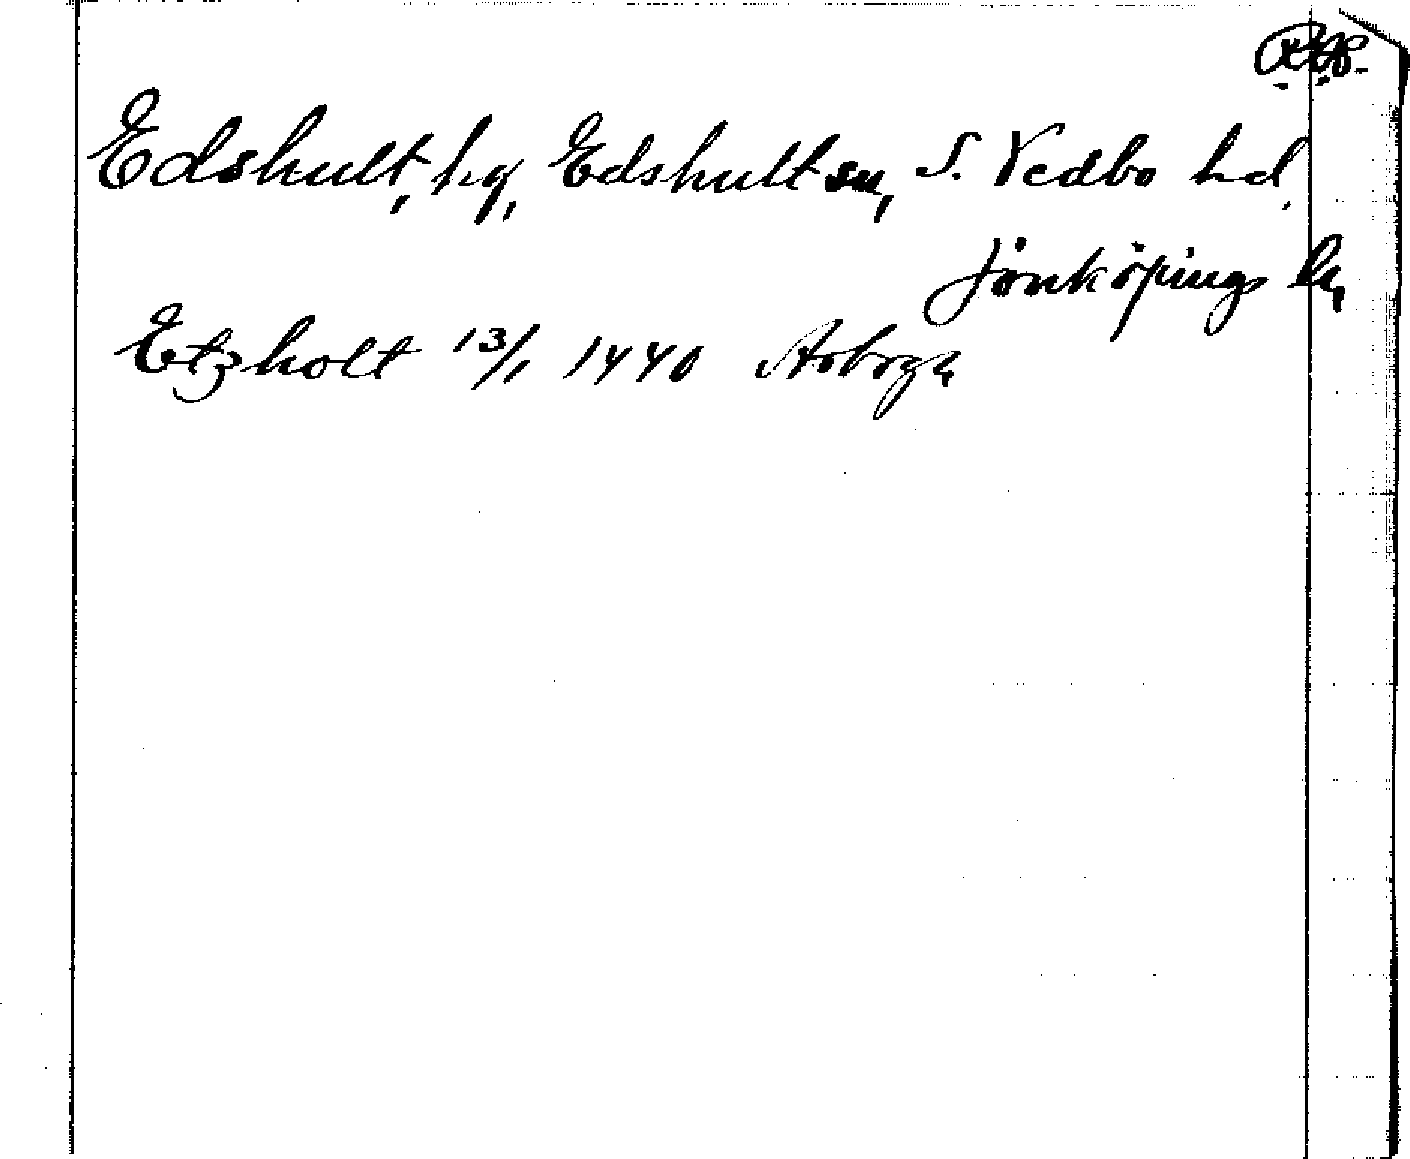 Edshult, hg, Edshult sn, S. Vedbo hd,
Jönköpings ln
Etzholt 13/1 1440 Arboga